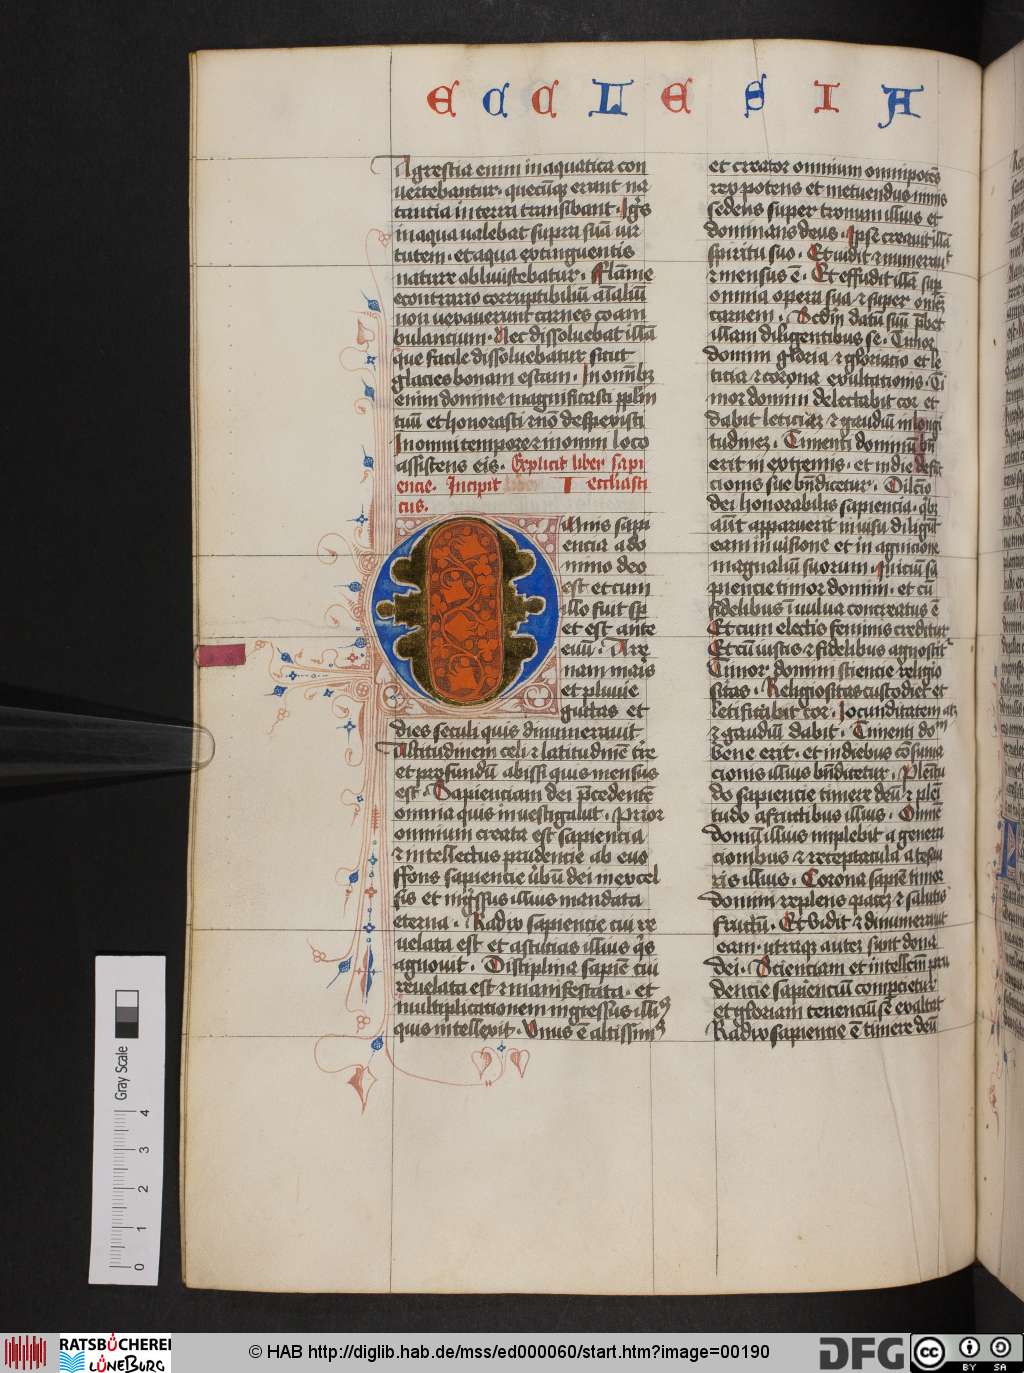 E C C L E S I A
Agrestia enim in aquatica con
vertebantur. quecūqꝫ erant na
tantia in terra transibant. Ignis
in aqua ualebat supra suā uir
tutem. et aqua extinguentis
nature obliuiscebatur. fflāme
econtrario corruptibiliū aīaliū
non uexauerunt carnes coam
bulantium. Nec dissoluebat illā
que facile dissoluebatur sicut
glacies bonam escam. In omībꝫ
enim domine magnificasti pplm
tuū et honorasti et nō despexisti
In omni tempore et in omni loco
assistens eis. Explicit liber sapi
encie. Incipit liber ecclīasti
cus.
Omnis sapi
encia a do
mino deo
est et cum
illo fuit sꝑ
et est ante
euū. Are
nam maris
et pluuie
guttas et
dies seculi quis dinumerauit
Altitudinem celi et latitudinē tꝛe
et profundū abissi quis mensus
est. Sapienciam dei p̄cedentē
omnia quis inuestigauit. Prior
omnium creata est sapiencia
et intellectus prudencie ab euo
ffons sapiencie ūbū dei in excel
sis et ingressus illius mandata
eterna. Radix sapiencie cui re
uelata est et astucias illius q̄s
agnouit. Disciplina sapiē cui
reuelata est et manifestata. et
multiplicationem ingressus illiꝰ
quis intellexit. Unus ē altissimꝰ
et creator omnium omnipotēs
rex potens et metuendus nimis
sedens super tronum illius et
dominans deus. Ipse creauit illā
spiritu suo. Et uidit et numerauit
et mensus ē. Et effudit illā sup
omnia opera sua et super omnē
carnem. Secdm datū suū p̄bet
illam diligentibus se. Timor
domini gloria et gloriacio et le
ticia et corona exultationis. Ti
mor domini delectabit cor et
dabit leticiaꝫ et gaudiū in longi
tudineꝫ. Timenti dominū bn̄
erit in extremis. et in die defūc
cionis sue bn̄dicetur. Dilectio
dei honorabilis sapiencia. q̄bꝫ
aūt apparuerit in uisu diligūt
eam in uisione et in agnicione
magnaliū suorum. Iniciū sa
piencie timor domini. et cū
fidelibus ī uulua concreatus ē
Et cum electis feminis creditur
Et cū iustis et fidelibus agnoscitꝛ
Timor domini sciencie religio
sitas. Religiositas custodiet et
letificabit cor. Iocunditatem atꝫ
et gaudiū dabit. Timenti dom̄
bene erit. et in diebus cōsuma
cionis illius bn̄dicetur. Plenitu
do sapiencie timere deū et plēi
tudo a fructibus illius. Omnē
domū illius implebit a genera
cionibus et receptacula a tesau
ris illius. Corona sapiē timor
domini replens paceꝫ et salutis
fructū. Et vidit et dinumerauit
eam. utraqꝫ auteꝫ sunt dona
dei. Scienciam et intellcm̄ pru
dencie sapienciū compcietur
et gloriam tenenciū se exaltat
Radix sapiencie ē timere deū
Gray Scale
0 1 2 3 4
RATSBÜCHEREI
LÜNEBURG
© HAB http://diglib.hab.de/mss/ed000060/start.htm?image=00190
DFG
cc BY SA